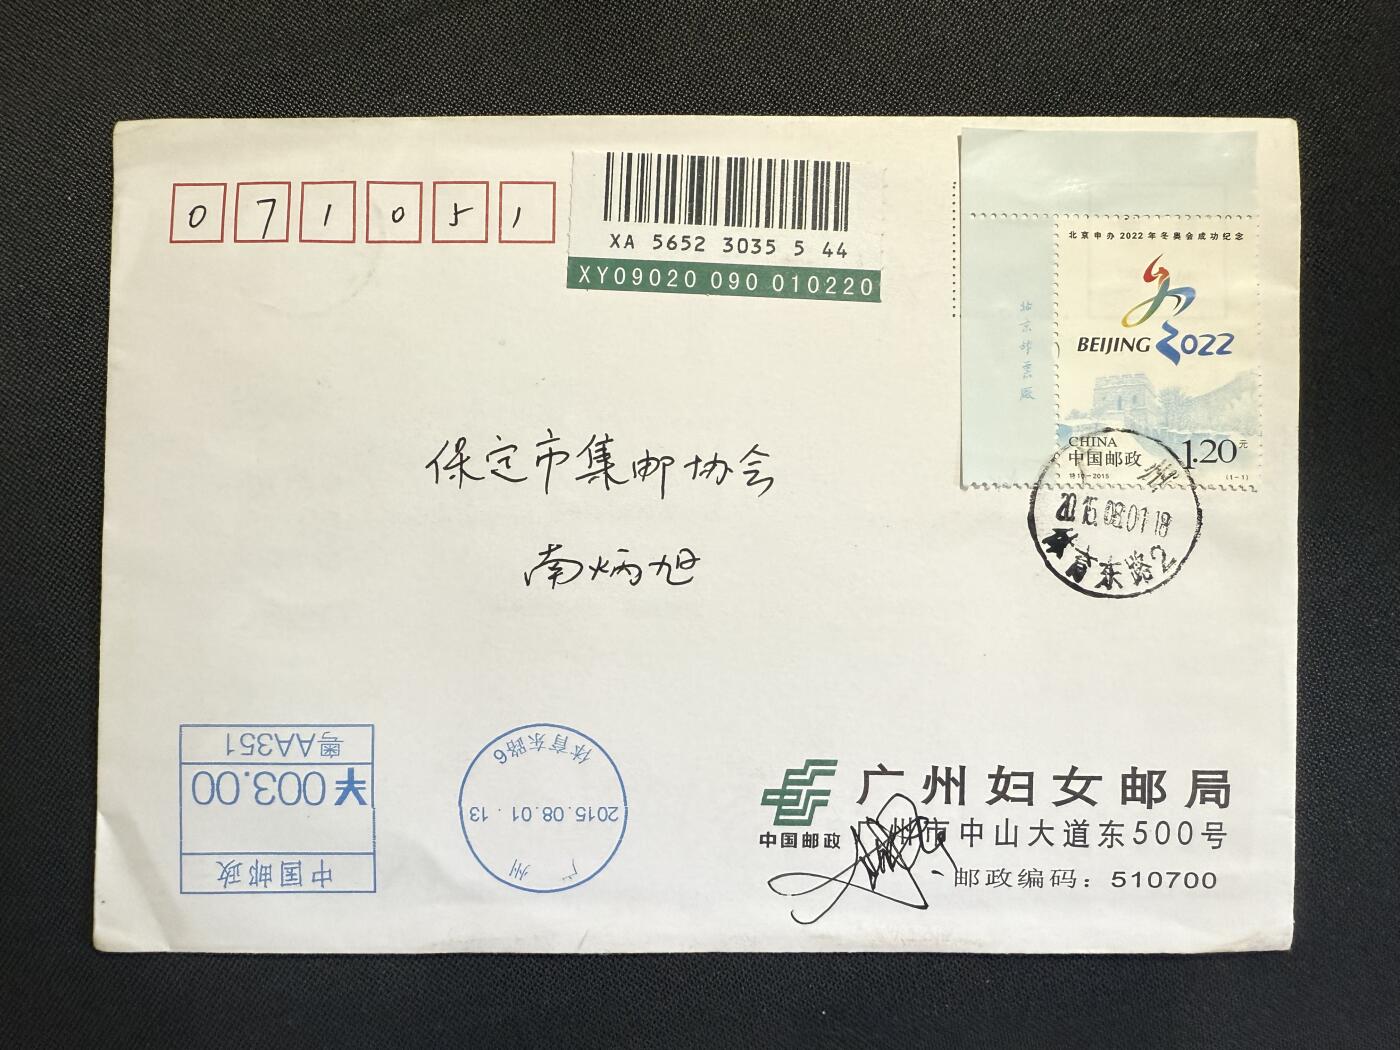 071051
XA 5652 3035 5 44
XY09020 090 010220
北京申办2022年冬奥会成功纪念
BEIJING 2022
北京邮票厂
CHINA
中国邮政
1.20元
2015 (1-1)
州
2015.08.01 18
育东路2
保定市集邮协会
南炳旭
粤AA351
¥003.00
中国邮政
体育东路6
2015.08.01.13
广州
中国邮政
广州妇女邮局
广州市中山大道东500号
邮政编码：510700